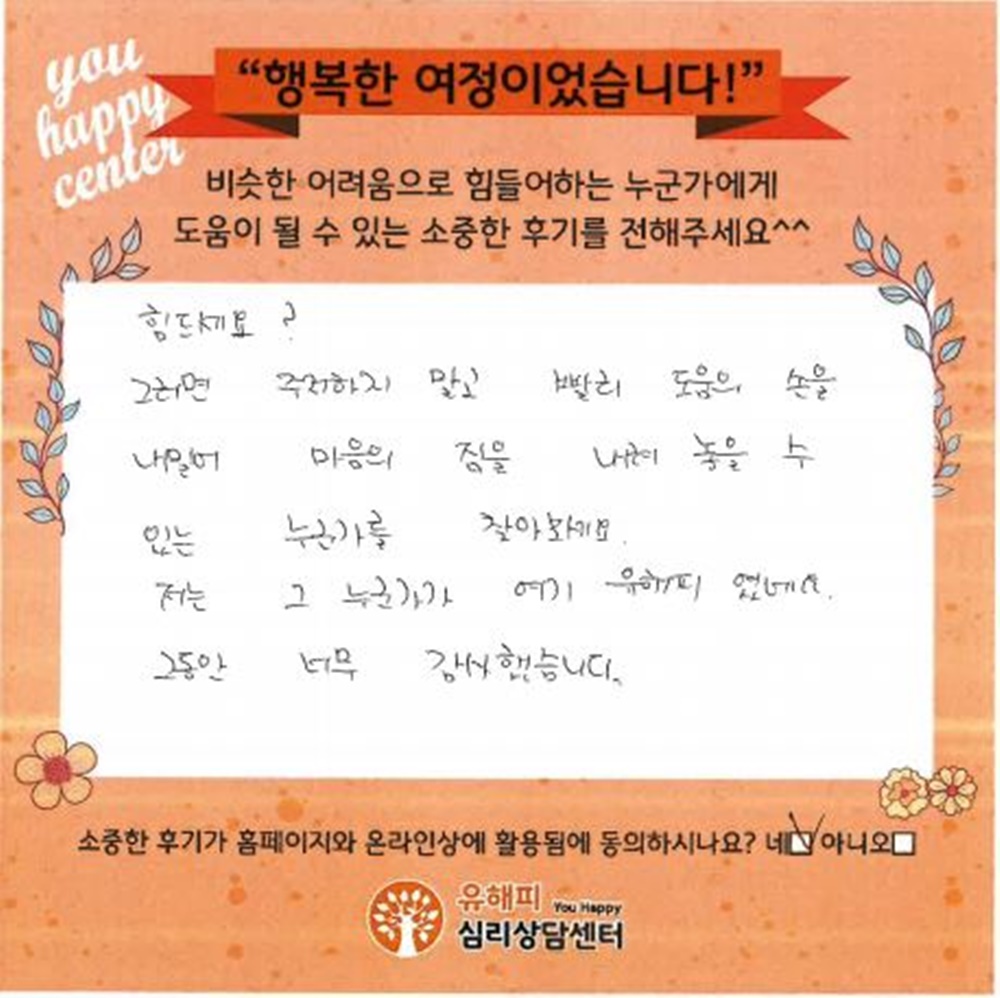 you
happy
center
“행복한 여정이었습니다!”
비슷한 어려움으로 힘들어하는 누군가에게
도움이 될 수 있는 소중한 후기를 전해주세요^^
힘드세요?
그러면 주저하지 말고 빨리 도움의 손을
내밀어 마음의 짐을 내려 놓을 수
있는 누군가를 찾아보세요.
저는 그 누군가가 여기 유해피 였네요.
그동안 너무 감사했습니다.
소중한 후기가 홈페이지와 온라인상에 활용됨에 동의하시나요? 네 아니오
유해피 You Happy
심리상담센터